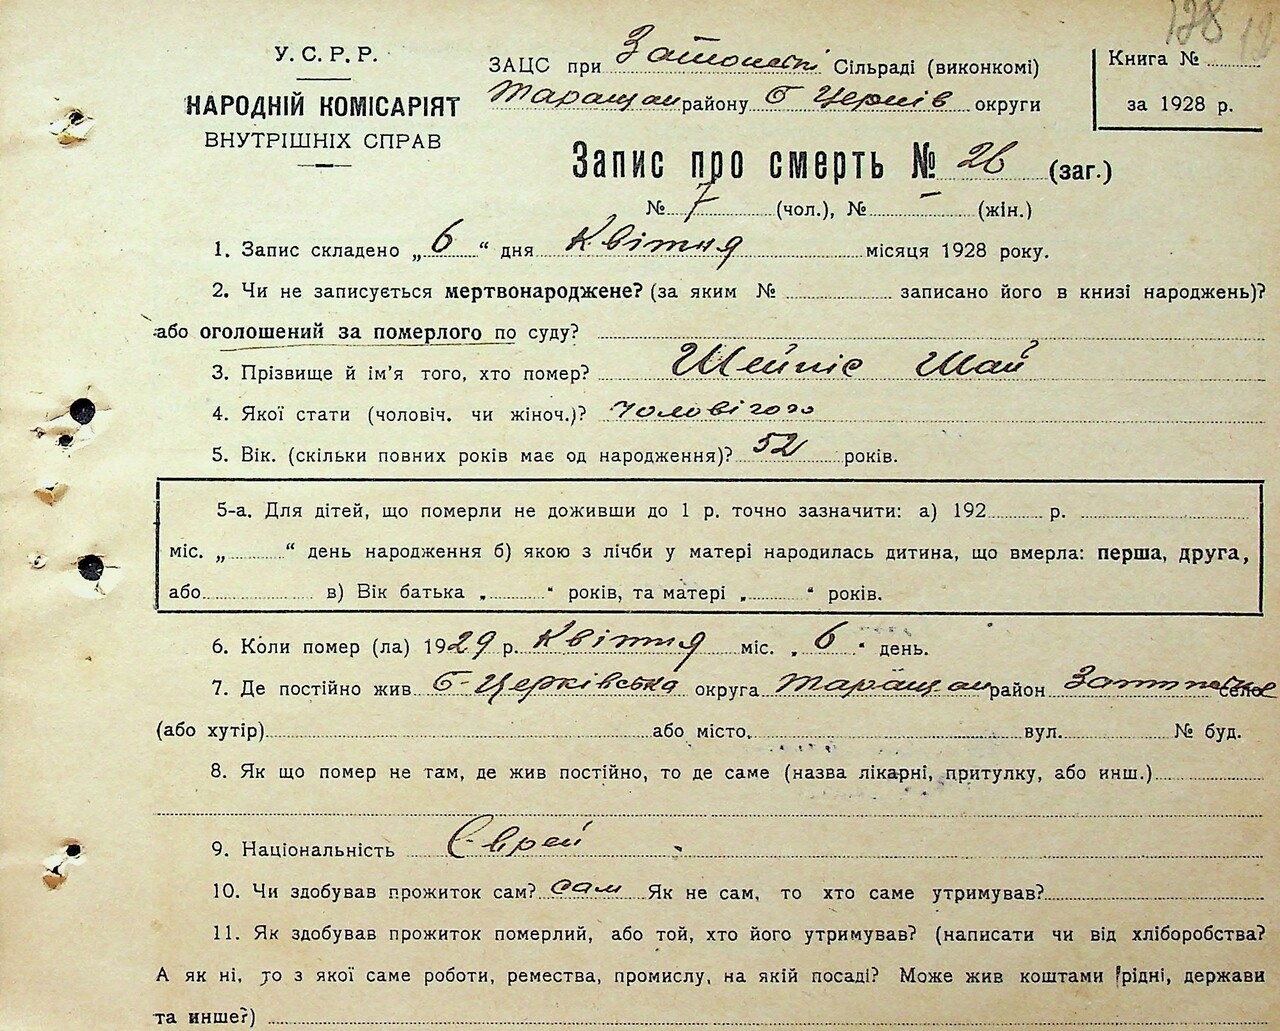 128
У. С. Р. Р.
НАРОДНІЙ КОМІСАРІЯТ
ВНУТРІШНІХ СПРАВ
ЗАЦС при Сільраді (виконкомі)
Таращан району Б Церків округи
Книга №
за 1928 р.
Запис про смерть № 26 (заг.)
№ 7 (чол.), № – (жін.)
1. Запис складено „ 6 “ дня Квітня місяця 1928 року.
2. Чи не записується мертвонароджене? (за яким № записано його в книзі народжень)?
або оголошений за померлого по суду?
3. Прізвище й ім’я того, хто помер? Шейніс Шай
4. Якої стати (чоловіч. чи жіноч.)? чоловічого
5. Вік. (скільки повних років має од народження)? 52 років.
5-а. Для дітей, що померли не доживши до 1 р. точно зазначити: а) 192 р.
міс. „ “ день народження б) якою з лічби у матері народилась дитина, що вмерла: перша, друга,
або в) Вік батька „ “ років, та матері „ “ років.
6. Коли помер (ла) 1929 р. Квітня міс. „ 6 “ день.
7. Де постійно жив б-Церківська округа Таращан район село
(або хутір) або місто. вул. № буд.
8. Як що помер не там, де жив постійно, то де саме (назва лікарні, притулку, або инш.)
9. Національність Єврей
10. Чи здобував прожиток сам? сам Як не сам, то хто саме утримував?
11. Як здобував прожиток померлий, або той, хто його утримував? (написати чи від хліборобства?
А як ні, то з якої саме роботи, ремества, промислу, на якій посаді? Може жив коштами рідні, держави
та инше?)